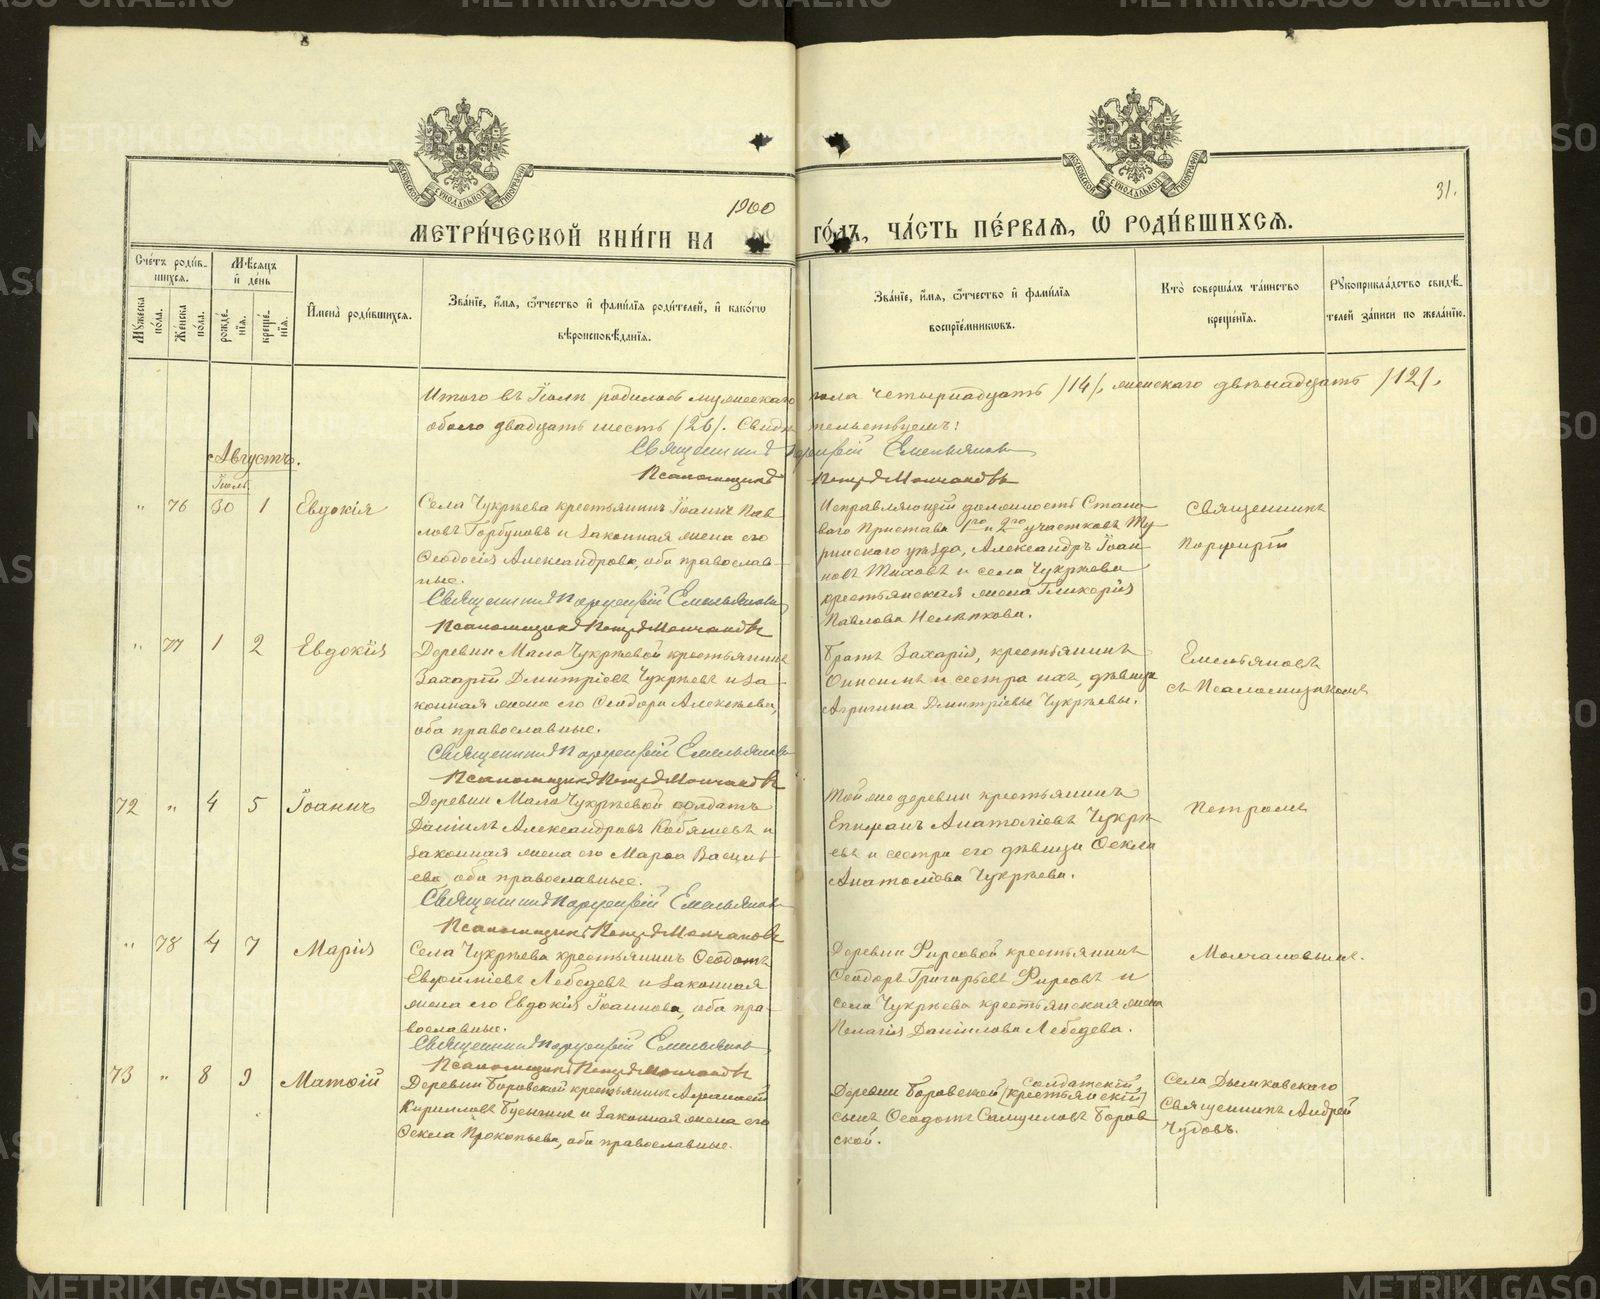 1900
31.
МЕТРИ́ЧЕСКОЙ КНИ́ГИ НА
ГО́ДЪ, ЧА́СТЬ ПЕ́РВАѦ, Ѽ РОДИ́ВШИХСѦ.
Сче́тъ роди́в-
шихся.
Мѣ́сяцъ
и де́нь
Му́жеска
по́ла.
Же́нска
по́ла.
рожде́-
нія.
креще́-
нія.
Имена̀ роди́вшихся.
Зва́ніе, и́мя, ѻ҆́тчество и фами́лія роди́телей, и како́гѡ
вѣроисповѣ́данія.
Зва́ніе, и́мя, ѻ҆́тчество и фами́лія
воспріе́мникѡвъ.
Кто̀ соверша́лъ та́инство
креще́нія.
Рукоприкла́дство свидѣ́-
телей за́писи по жела́нію.
Итого въ Іюлѣ родилось мужескаго пола четырнадцать /14/, женскаго двѣнадцать /12/,
обоего двадцать шесть /26/. Свидѣтельствуемъ:
Священникъ Порфирій Емельяновъ
Псаломщикъ Петръ Молчановъ
Августъ.
Іюль
" 76 30 1 Евдокія
Села Чукрѣева крестьянинъ Іоаннъ Пав-
ловъ Горбуновъ и законная жена его
Ѳеодосія Александрова, оба православ-
ные.
Священникъ Порфирій Емельяновъ
Псаломщикъ Петръ Молчановъ
Исправляющій должность Стано-
ваго Пристава 1го и 2го участковъ Ту-
ринскаго уѣзда, Александръ Іоан-
новъ Тиховъ и села Чукрѣева
крестьянская жена Гликерія
Павлова Нелѣпкова.
Священникъ
Порфирій
" 77 1 2 Евдокія
Деревни Мало Чукрѣевой крестьянинъ
Захарій Дмитріевъ Чукрѣевъ и за-
конная жена его Ѳеодора Алексѣева,
оба православные.
Священникъ Порфирій Емельяновъ
Псаломщикъ Петръ Молчановъ
Братъ Захарія, крестьянинъ
Онисимъ и сестра ихъ, дѣвица
Агрипина Дмитріевы Чукрѣевы.
Емельяновъ
съ Псаломщикомъ
72 " 4 5 Іоаннъ
Деревни Мало Чукрѣевой солдатъ
Даніилъ Александровъ Кобяшевъ и
законная жена его Марѳа Василь-
ева, оба православные.
Священникъ Порфирій Емельяновъ
Псаломщикъ Петръ Молчановъ
Той же деревни крестьянинъ
Епифанъ Анатоліевъ Чукрѣ-
евъ и сестра его дѣвица Ѳекла
Анатоліева Чукрѣева.
Петромъ
" 78 4 7 Марія
Села Чукрѣева крестьянинъ Ѳеодотъ
Евфиміевъ Лебедевъ и законная
жена его Евдокія Іоаннова, оба пра-
вославные.
Священникъ Порфирій Емельяновъ
Псаломщикъ Петръ Молчановъ
Деревни Фирсовой крестьянинъ
Ѳеодоръ Григорьевъ Фирсовъ и
села Чукрѣева крестьянская жена
Пелагія Даніилова Лебедева.
Молчановымъ.
73 " 8 9 Матѳій
Деревни Боровской крестьянинъ Аѳанасій
Кирилловъ Бусыгинъ и законная жена его
Ѳекла Прокопьева, оба православные.
солдатскій,
Деревни Боровской [крестьянскій]
сынъ Ѳеодотъ Самуиловъ Боров-
ской.
Села Дымковскаго
Священникъ Андрей
Чудовъ.
METRIKI.GASO-URAL.RU